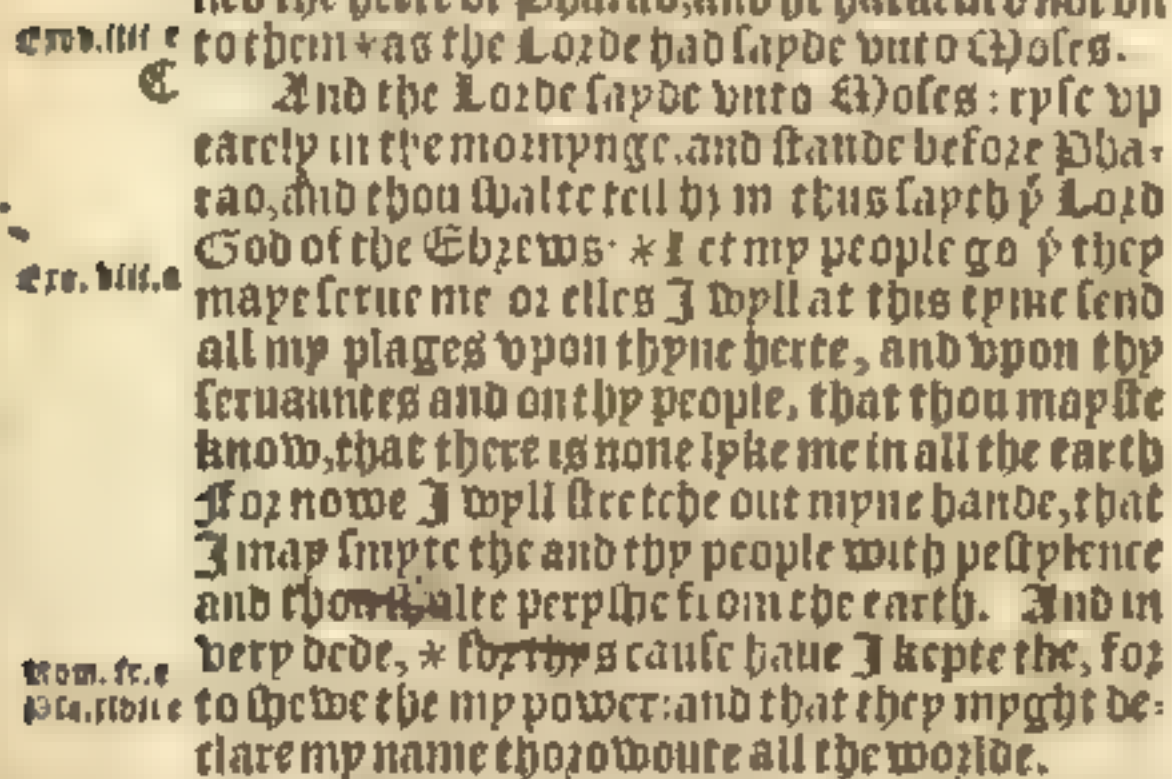 to them * as the Lorde had sayde vnto Moses.
C
And the Lorde sayde vnto Moses: ryse vp
early in the mornynge, and stande before Pha-
rao, and thou shalte tell hym thus sayth yͭ Lord
God of the Ebrews· * Let my people go yͭ they
maye serue me or elles I wyll at this tyme send
all my plages vpon thyne herte, and vpon thy
seruauntes and on thy people, that thou mayste
know, that there is none lyke me in all the earth
For nowe I wyll stretche out myne hande, that
I may smyte the and thy people with pestylence
and thou shalte peryshe from the earth. And in
very dede, * for thys cause haue I kepte the, for
to shewe the my power: and that they myght de-
Rom. ix.
clare my name thorowoute all the worlde.